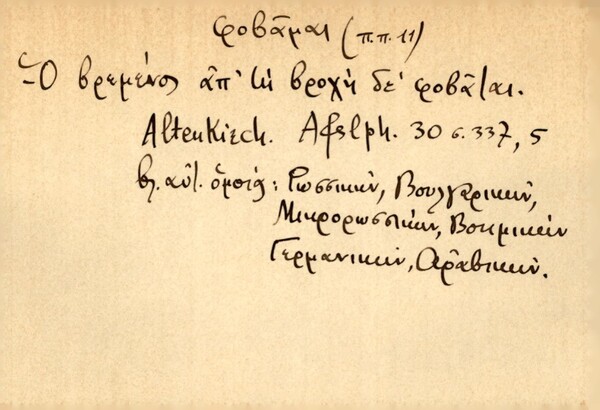 φοβᾶμαι (π.π. 11)
Ὁ βρεμένος ἀπ' τὴ βροχὴ δὲ φοβᾶται.
Altenkirch. Afslph. 30 σ. 337, 5
βλ. αὐτ. ὅμοια: Ρωσσικήν, Βουλγαρικήν,
Μικρορωσσικήν, Βοημικήν
Γερμανικήν, Ἀραβικήν.